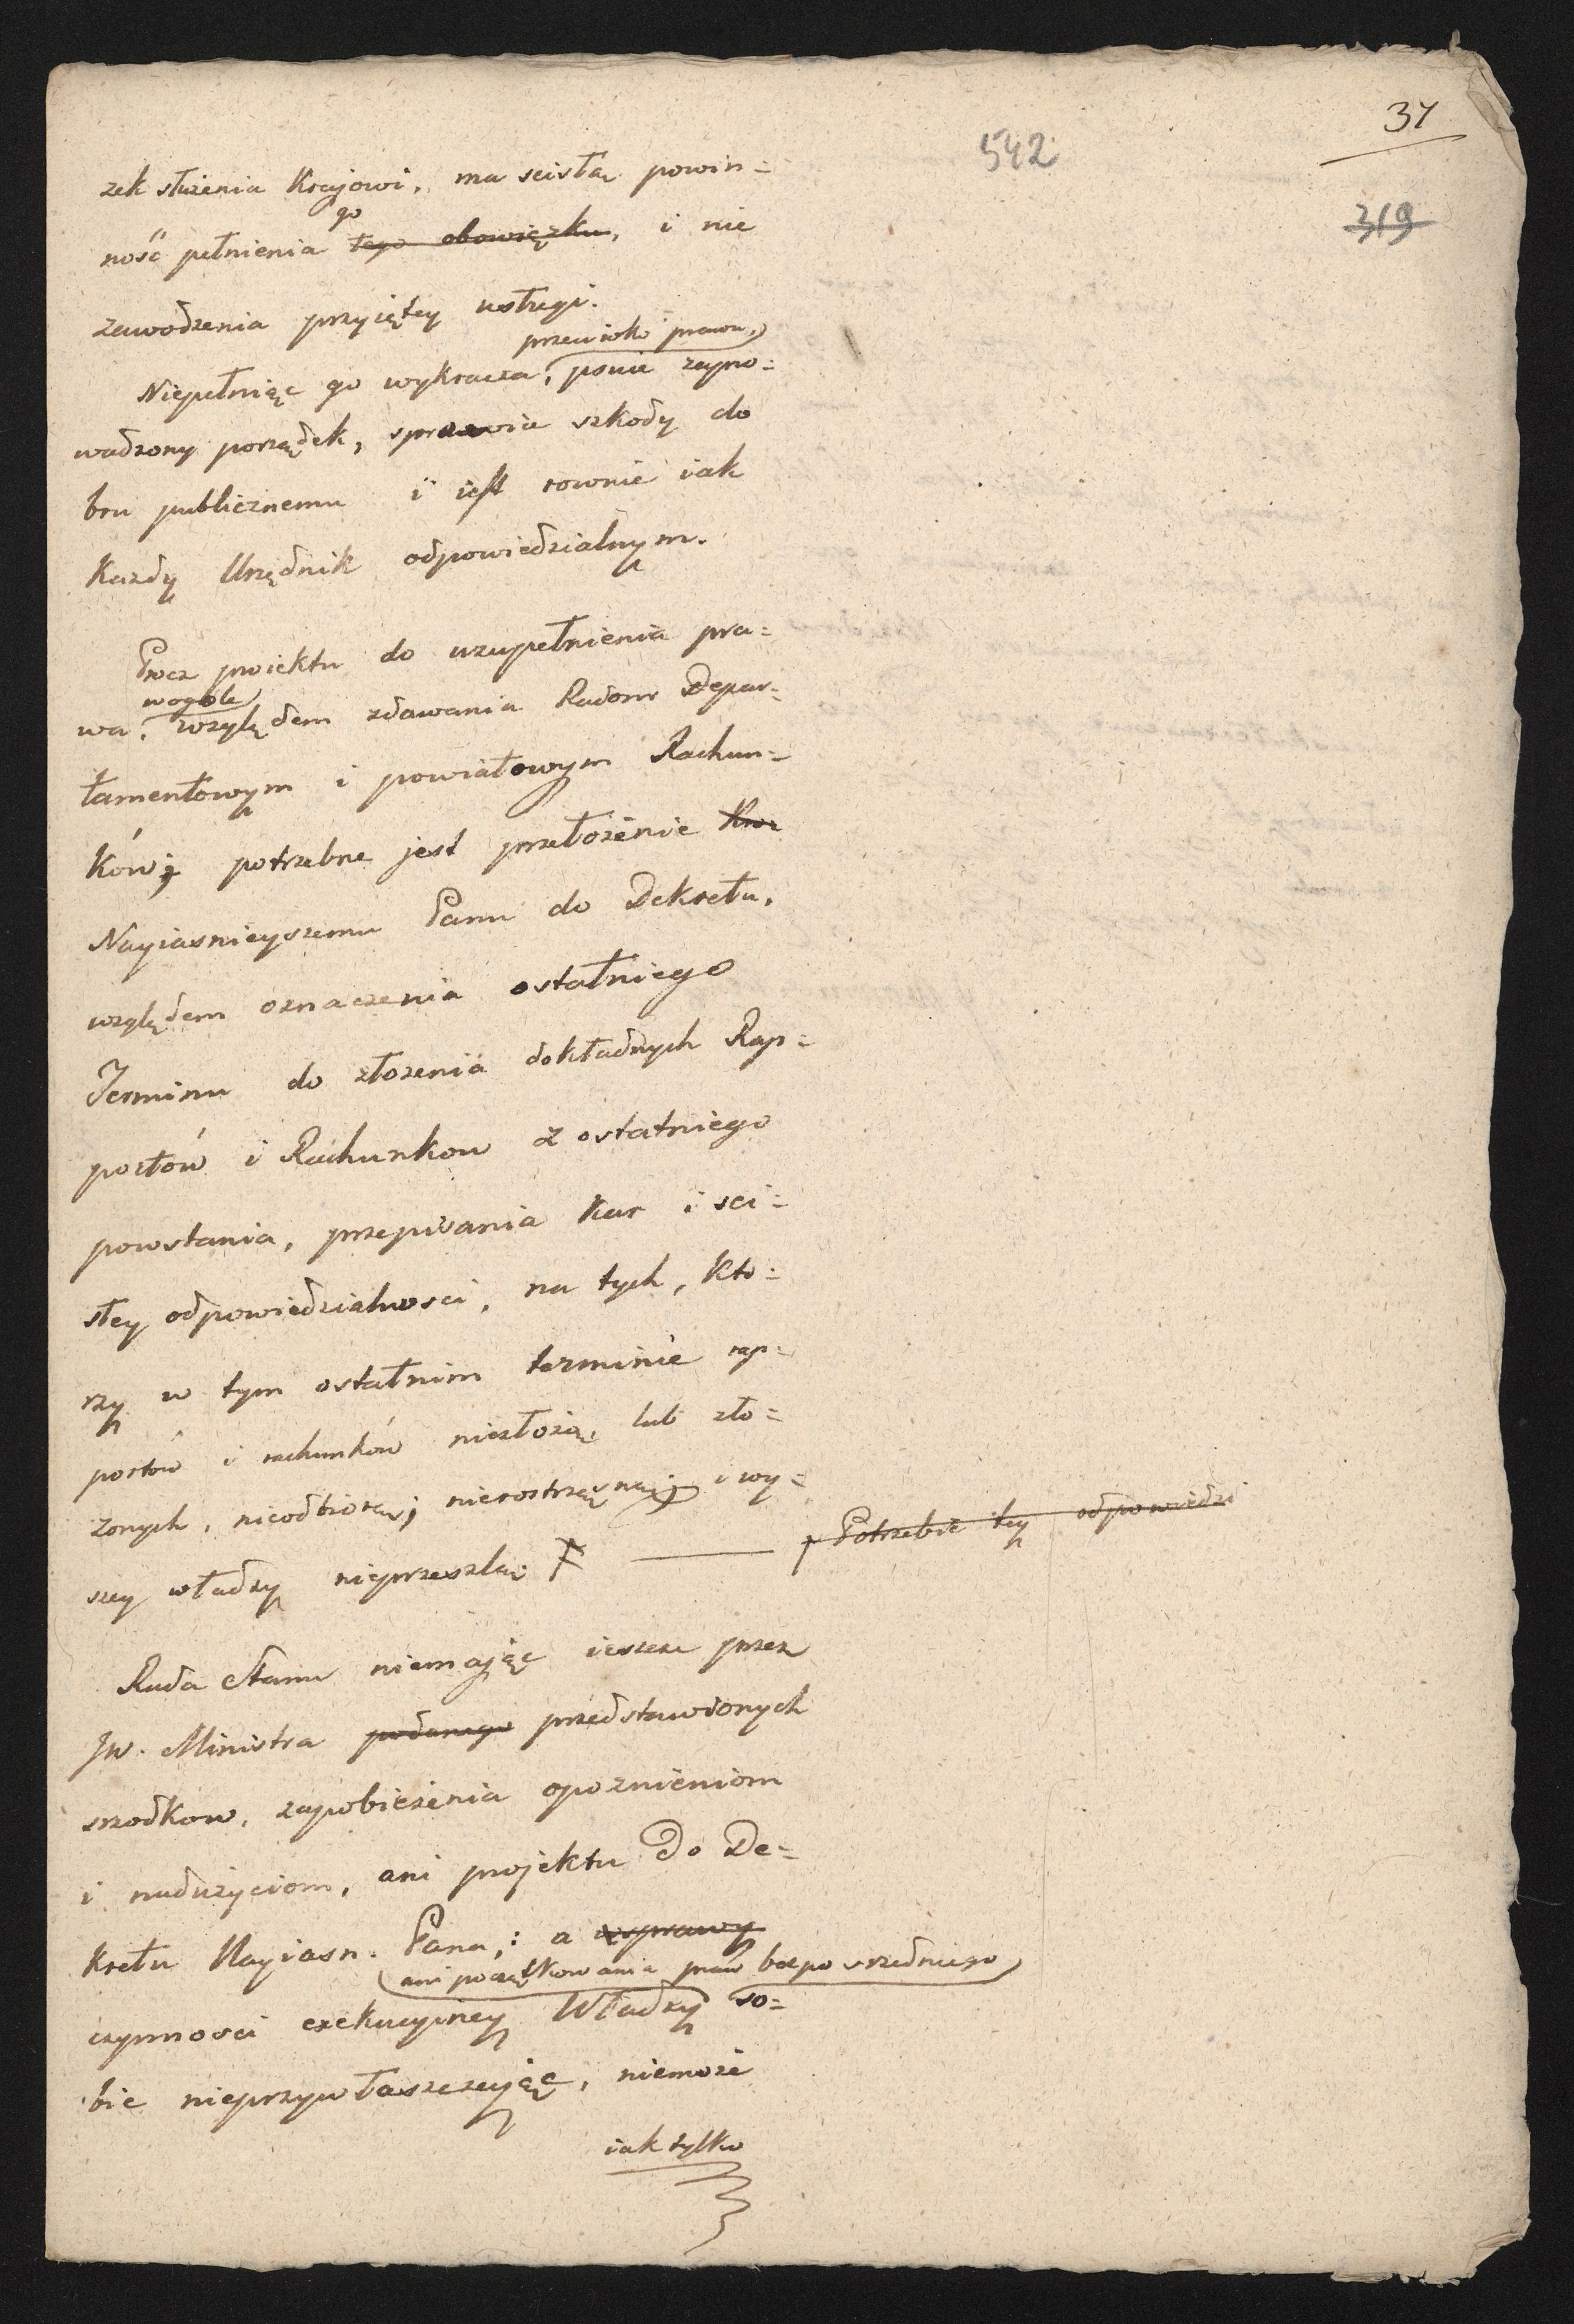 37
542
319
zek służenia Krajowi, ma scisłą powin=
go
ność pełnienia tego obowiązku, i nie
zawodzenia przyiętey usługi.
przeciwko prawu,
Niepełniąc go wykracza, psuie zapro=
wadzony porządek, sprawia szkody do
bru publicznemu i iest rownie iak
Każdy Urzędnik odpowiedzialnym.
Procz proiektu do uzupełnienia pra=
wogóle
wa, względem zdawania Radom Depar=
tamentowym i powiatowym Rachun=
ków; potrzebne jest przełożenie
Nayiasnieyszemu Panu do Dekretu,
względem oznaczenia ostatniego
Terminu do złożenia dokładnych Rap=
portów i Rachunkow z ostatniego
powstania, przepisania kar i sci=
słey odpowiedzialnosci, na tych, kto=
rzy w tym ostatnim terminie rap=
portów i rachunków niezłożą, lub zło=
żonych, nieodbiorą, nieroztrząsną i wy=
szey władzy nieprzeszlą F — Potrzebie tey odpowiedzi
Rada Stanu niemając ieszcze przez
JW. Ministra podanego przedstawionych
srzodkow, zapobieżenia opoznieniom
i nadużyciom, ani projektu Do De=
kretu Nayiasn. Pana,: a wsprawy
ani początkowania praw bezposrzedniego
czynnosci exekucyiney Władzy so=
bie nieprzywłaszczając, niemoże
iak tylko